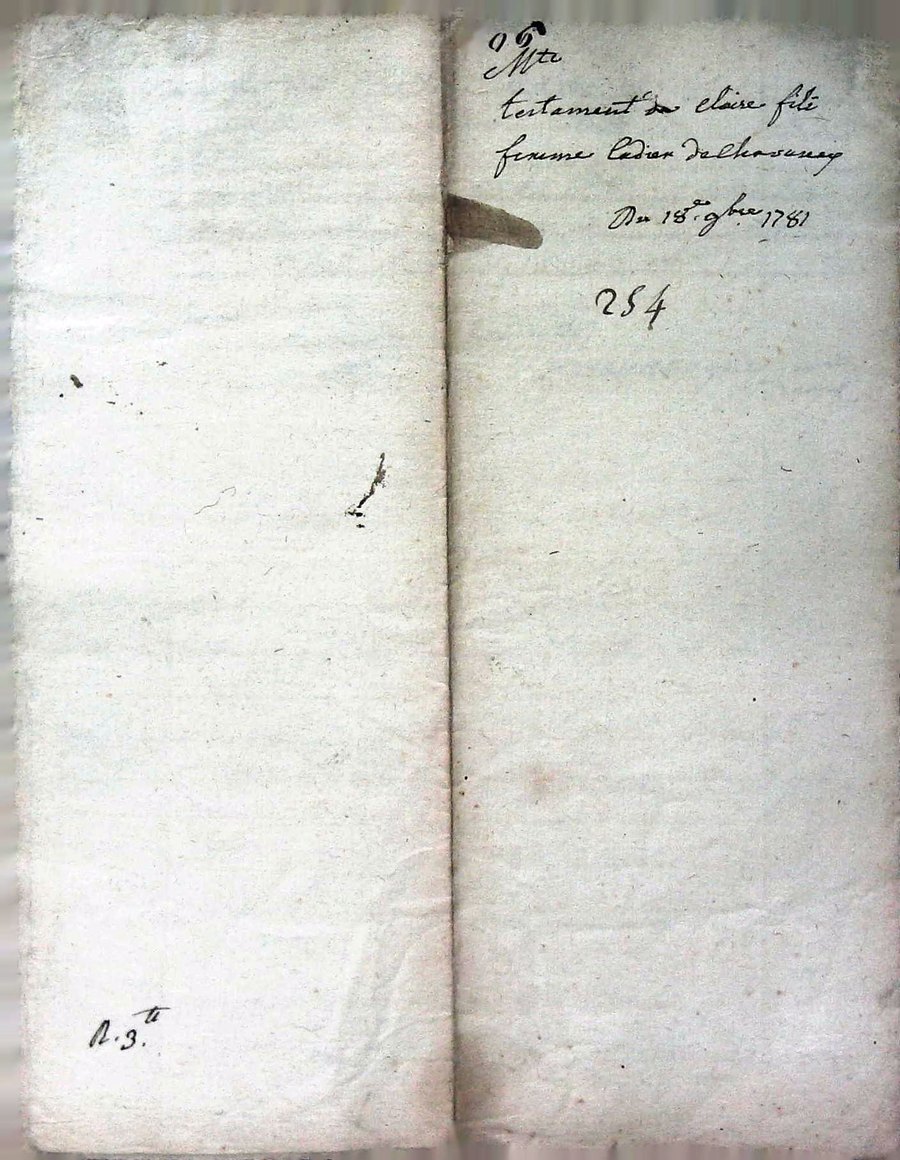 96
Mte
testament de claire filè
femme Cadier de
Du 18.e 9bre 1781
254
R. 3.tt